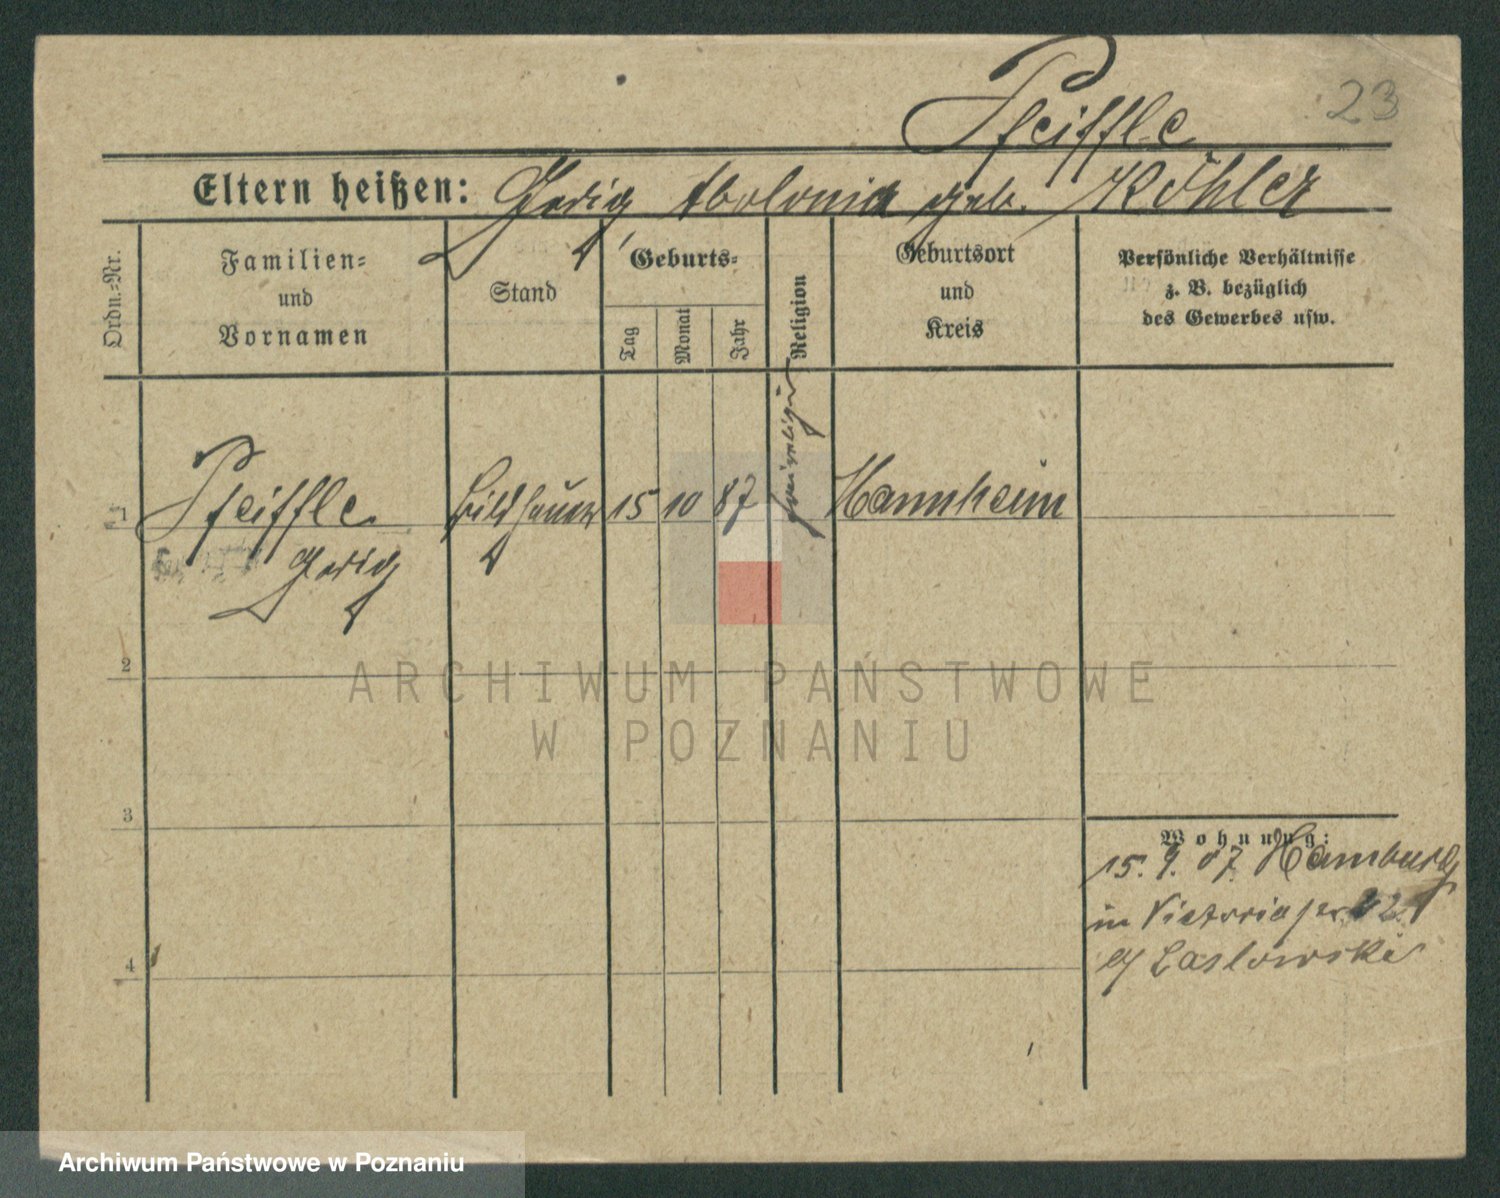 23
Pfeiffle
Eltern heißen: Georg Abolonia geb. Köhler
Ordn.-Nr.
Familien-
und
Vornamen
Stand
Geburts-
Tag
Monat
Jahr
Religion
Geburtsort
und
Kreis
Persönliche Verhältnisse
z. B. bezüglich
des Gewerbes usw.
1 Pfeiffle Bildhauer 15 10 87 freirelig. Mannheim
Georg
2
3
4
Wohnung:
15. 9. 07. Hamburg
in Victoriastr. 22
b/ Laslowski
ARCHIWUM PAŃSTWOWE
W POZNANIU
Archiwum Państwowe w Poznaniu